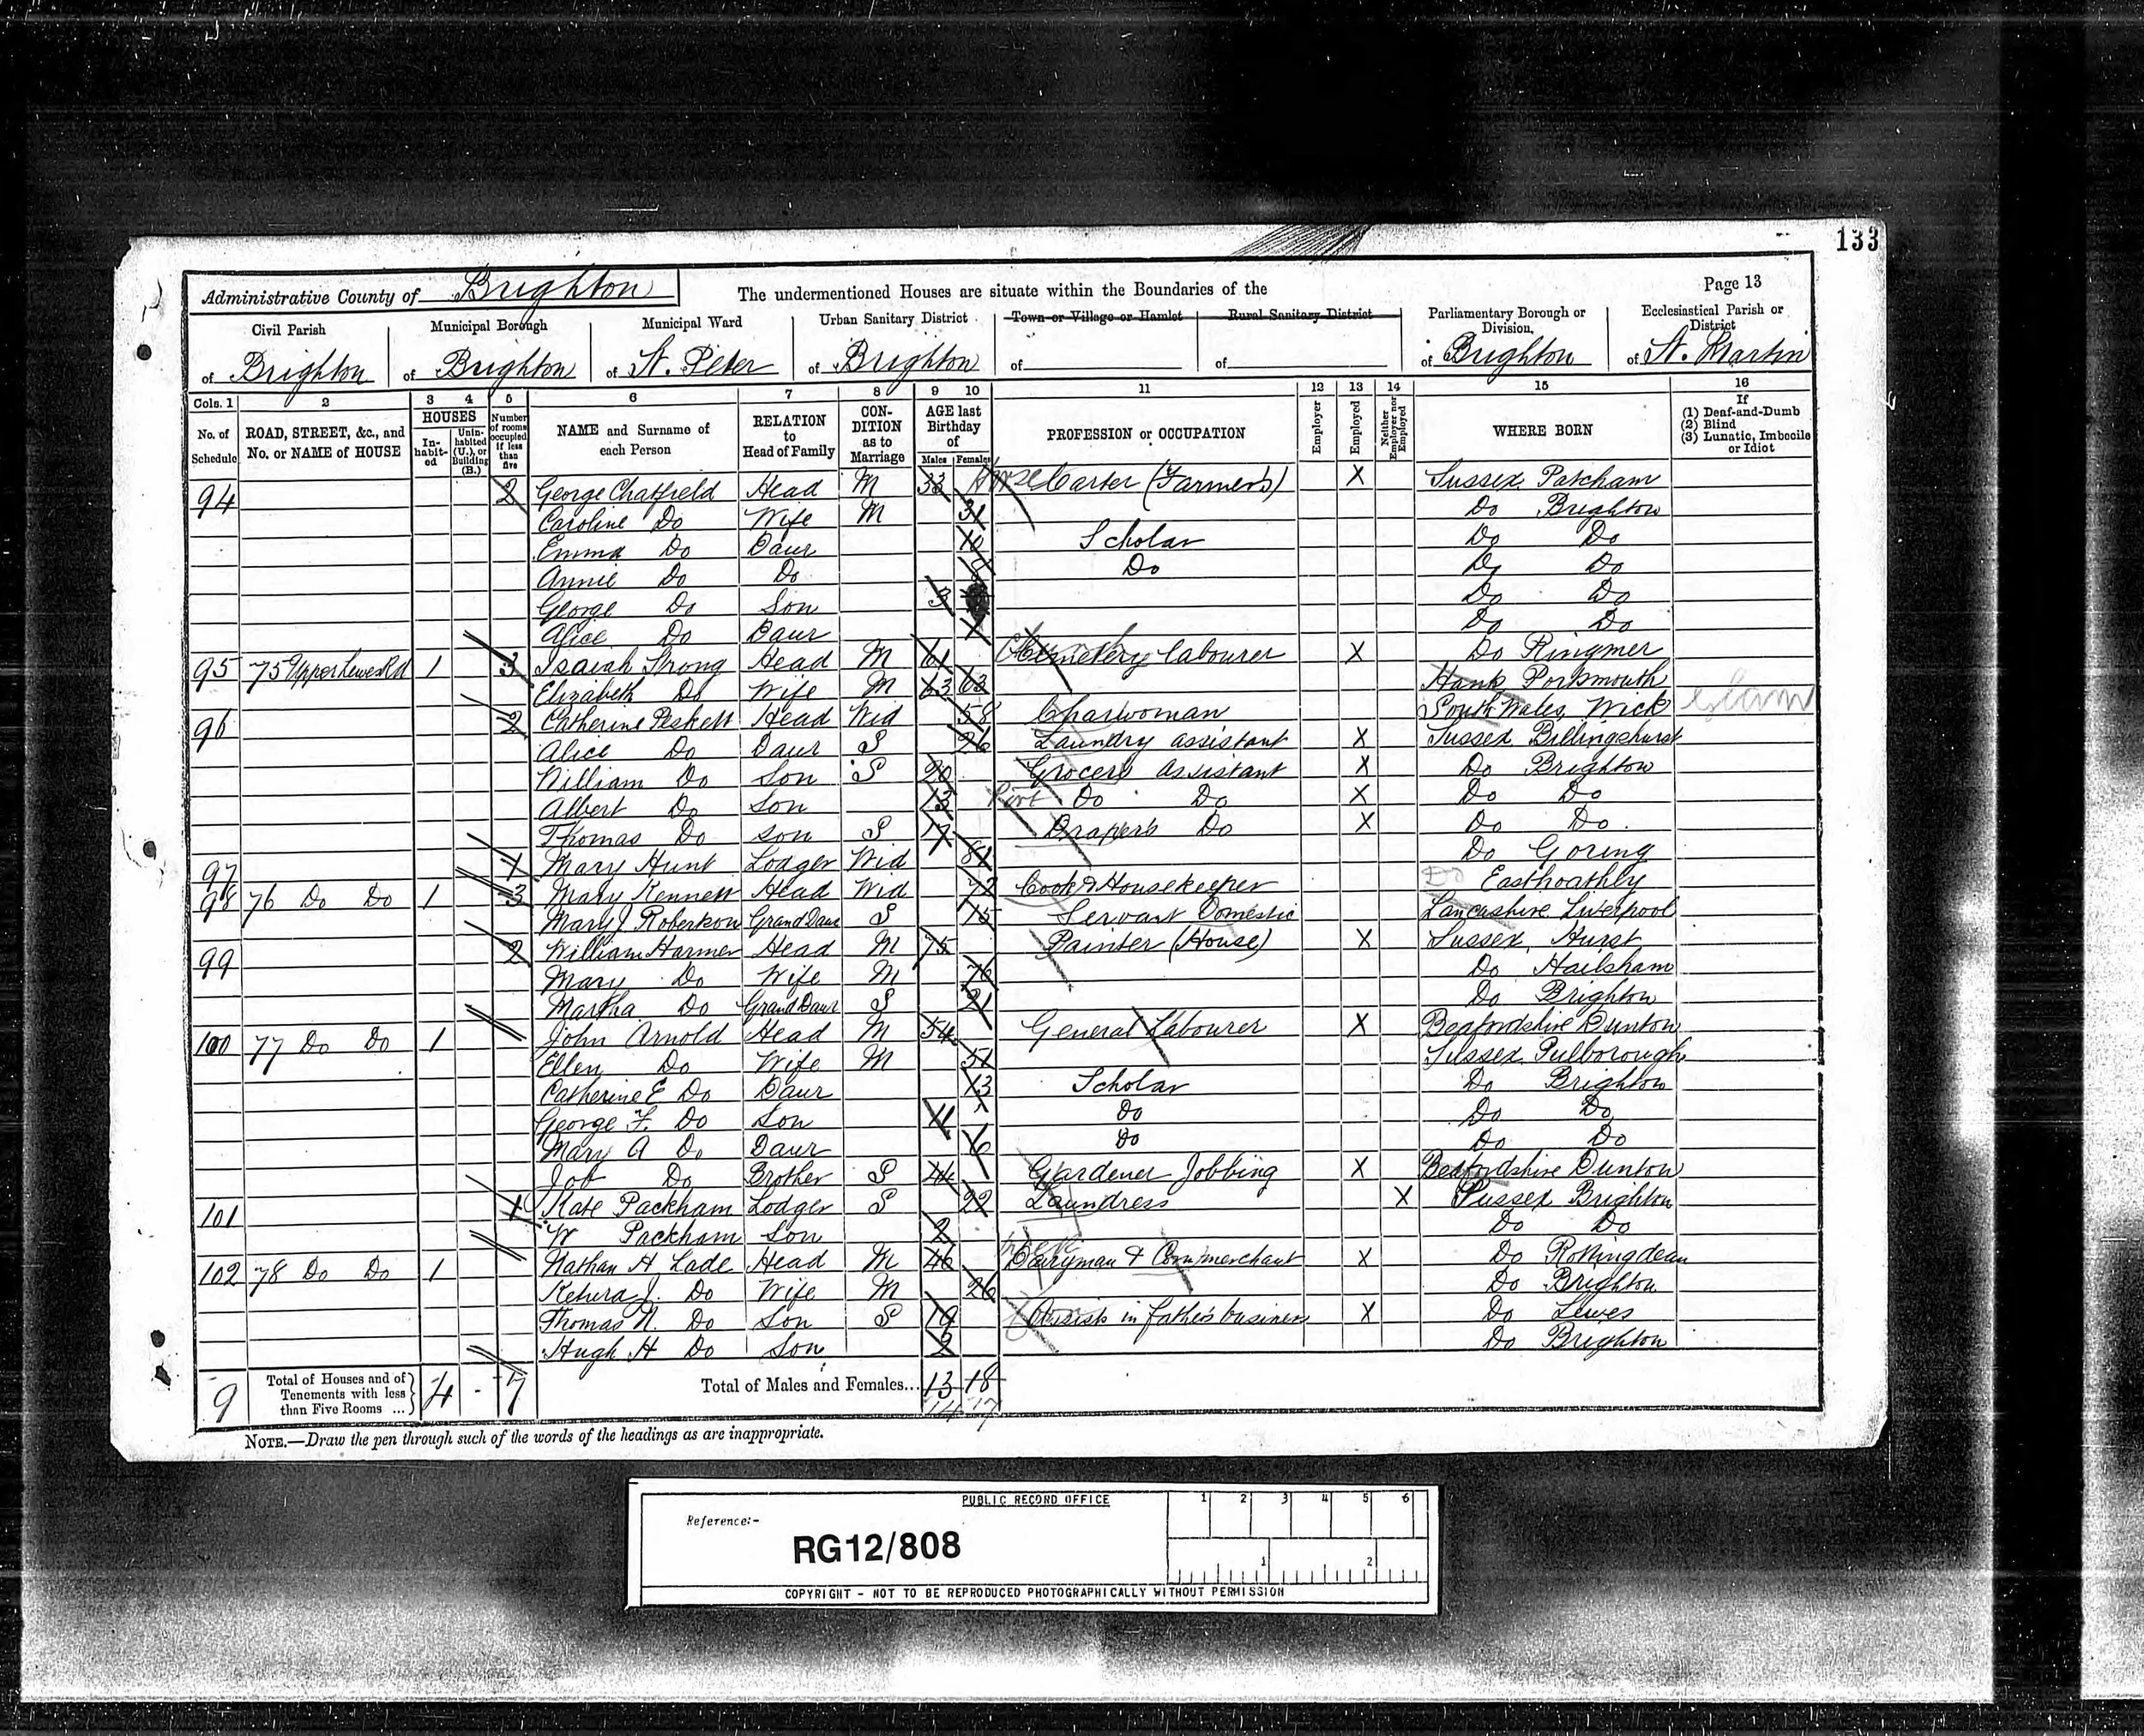 133
Administrative County of Brighton The undermentioned Houses are situate within the Boundaries of the Page 13
Civil Parish Municipal Borough Municipal Ward Urban Sanitary District Town or Village or Hamlet Rural Sanitary District Parliamentary Borough or Division, Ecclesiastical Parish or District
of Brighton of Brighton of St. Peter of Brighton of of of Brighton of St. Martin
Cols. 1 2 3 4 5 6 7 8 9 10 11 12 13 14 15 16
No. of Schedule ROAD, STREET, &c., and No. or NAME of HOUSE HOUSES Inhabited Uninhabited (U.), or Building (B.) Number of rooms occupied if less than five NAME and Surname of each Person RELATION to Head of Family CONDITION as to Marriage AGE last Birthday of Males Females PROFESSION or OCCUPATION Employer Employed Neither Employer nor Employed WHERE BORN If (1) Deaf-and-Dumb (2) Blind (3) Lunatic, Imbecile or Idiot
94 2 George Chatfield Head M 33 Carter (Farmer's) X Sussex Patcham
Caroline Do Wife M 31 Do Brighton
Emma Do Daur 10 Scholar Do Do
Annie Do Do Do Do Do
George Do Son 3 Do Do
Alice Do Daur Do Do
95 75 Upper Lewes Rd 1 3 Isaiah Strong Head M 61 Cemetery labourer X Do Ringmer
Elizabeth Do Wife M 63 63 Hants Portsmouth
96 2 Catherine Peskett Head Wid 58 Charwoman South Wales, Wick Glam
Alice Do Daur S 26 Laundry assistant X Sussex Billingshurst
William Do Son S 20 Grocers assistant X Do Brighton
Albert Do Son 13 Do Do X Do Do
Thomas Do Son S 17 Drapers Do X Do Do.
97 1 Mary Hunt Lodger Wid 81 Do Goring
98 76 Do Do 1 3 Mary Kennett Head Wid 72 Cook & Housekeeper Do Easthoathly
Mary J Robertson Grand Daur S 15 Servant Domestic Lancashire Liverpool
99 2 William Harmer Head M 75 Painter (House) X Sussex, Hurst
Mary Do Wife M 76 Do Hailsham
Martha Do Grand Daur S 21 Do Brighton
100 77 Do Do 1 John Arnold Head M 54 General Labourer X Bedfordshire Dunton
Ellen Do Wife M 51 Sussex Pulborough
Catherine E Do Daur 13 Scholar Do Brighton
George F. Do Son 11 Do Do Do
Mary A Do Daur 6 Do Do Do
Job Do Brother S 44 Gardener Jobbing X Bedfordshire Dunton
101 1 Kate Packham Lodger S 22 Laundress X Sussex Brighton
W Packham Son 2 Do Do
102 78 Do Do 1 Nathan H Lade Head M 46 Dairyman & Cornmerchant X Do Rottingdean
Ketura J. Do Wife M 26 Do Brighton
Thomas N. Do Son S 19 Assists in father's business X Do Lewes
Hugh H Do Son 2 Do Brighton
9 Total of Houses and of Tenements with less than Five Rooms ... 4 - 7 Total of Males and Females... 13 18
14 17
NOTE.—Draw the pen through such of the words of the headings as are inappropriate.
PUBLIC RECORD OFFICE 1 2 3 4 5 6
Reference:-
RG12/808
1 2
COPYRIGHT - NOT TO BE REPRODUCED PHOTOGRAPHICALLY WITHOUT PERMISSION